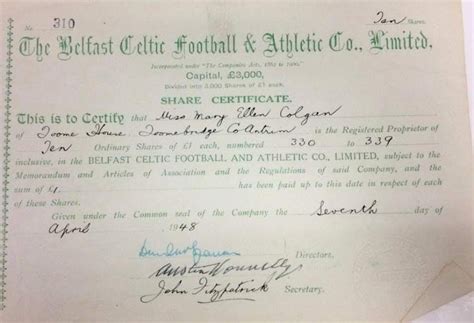 No. 310 Ten Shares.
The Belfast Celtic Football & Athletic Co., Limited,
Incorporated under "The Companies Acts, 1862 to 1900."
Capital, £3,000,
Divided into 3,000 Shares of £1 each.
SHARE CERTIFICATE.
This is to Certify that Miss Mary Ellen Colgan
of Toome House, Toomebridge Co Antrim is the Registered Proprietor of
Ten Ordinary Shares of £1 each, numbered 330 to 339
inclusive, in the BELFAST CELTIC FOOTBALL AND ATHLETIC CO., LIMITED, subject to the
Memorandum and Articles of Association and the Regulations of said Company, and the
sum of £1 has been paid up to this date in respect of each
of these Shares.
Given under the Common seal of the Company the Seventh day of
April 1948
Directors.
Austin Donnelly
John Fitzpatrick Secretary.